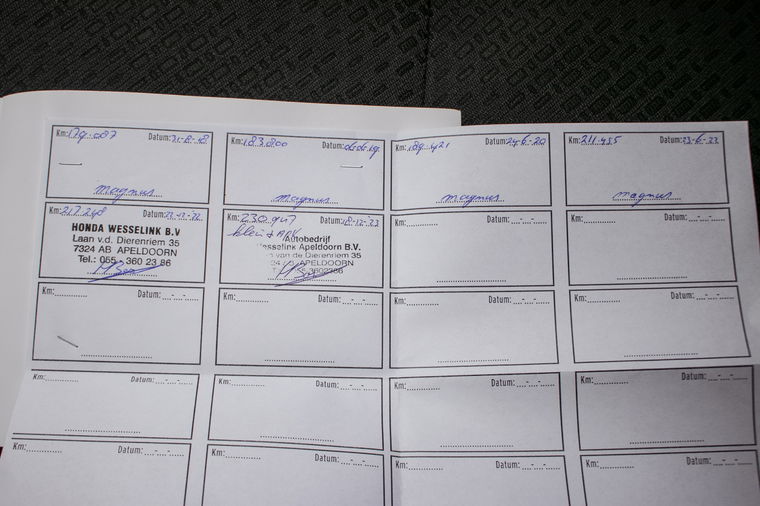 Km: 179.087 Datum: 31-8-18
magnus
Km: 183.800 Datum:
magnus
Km: 189.421 Datum: 24-6-20
magnus
Km: 211.455 Datum: 23-6-22
magnus
Km: 217.248 Datum:
HONDA WESSELINK B.V
Laan v.d. Dierenriem 35
7324 AB APELDOORN
Tel.: 055 - 360 23 86
Km: 230.947 Datum: 18-12-23
klein + APK
Autobedrijf
Wesselink Apeldoorn B.V.
van de Dierenriem 35
24 APELDOORN
55-3602386
Km: Datum:
Km: Datum:
Km: Datum:
Km: Datum:
Km: Datum:
Km: Datum:
Km: Datum:
Km: Datum:
Km: Datum:
Km: Datum:
Km: Datum:
Km: Datum:
Km: Datum:
Km: Datum: